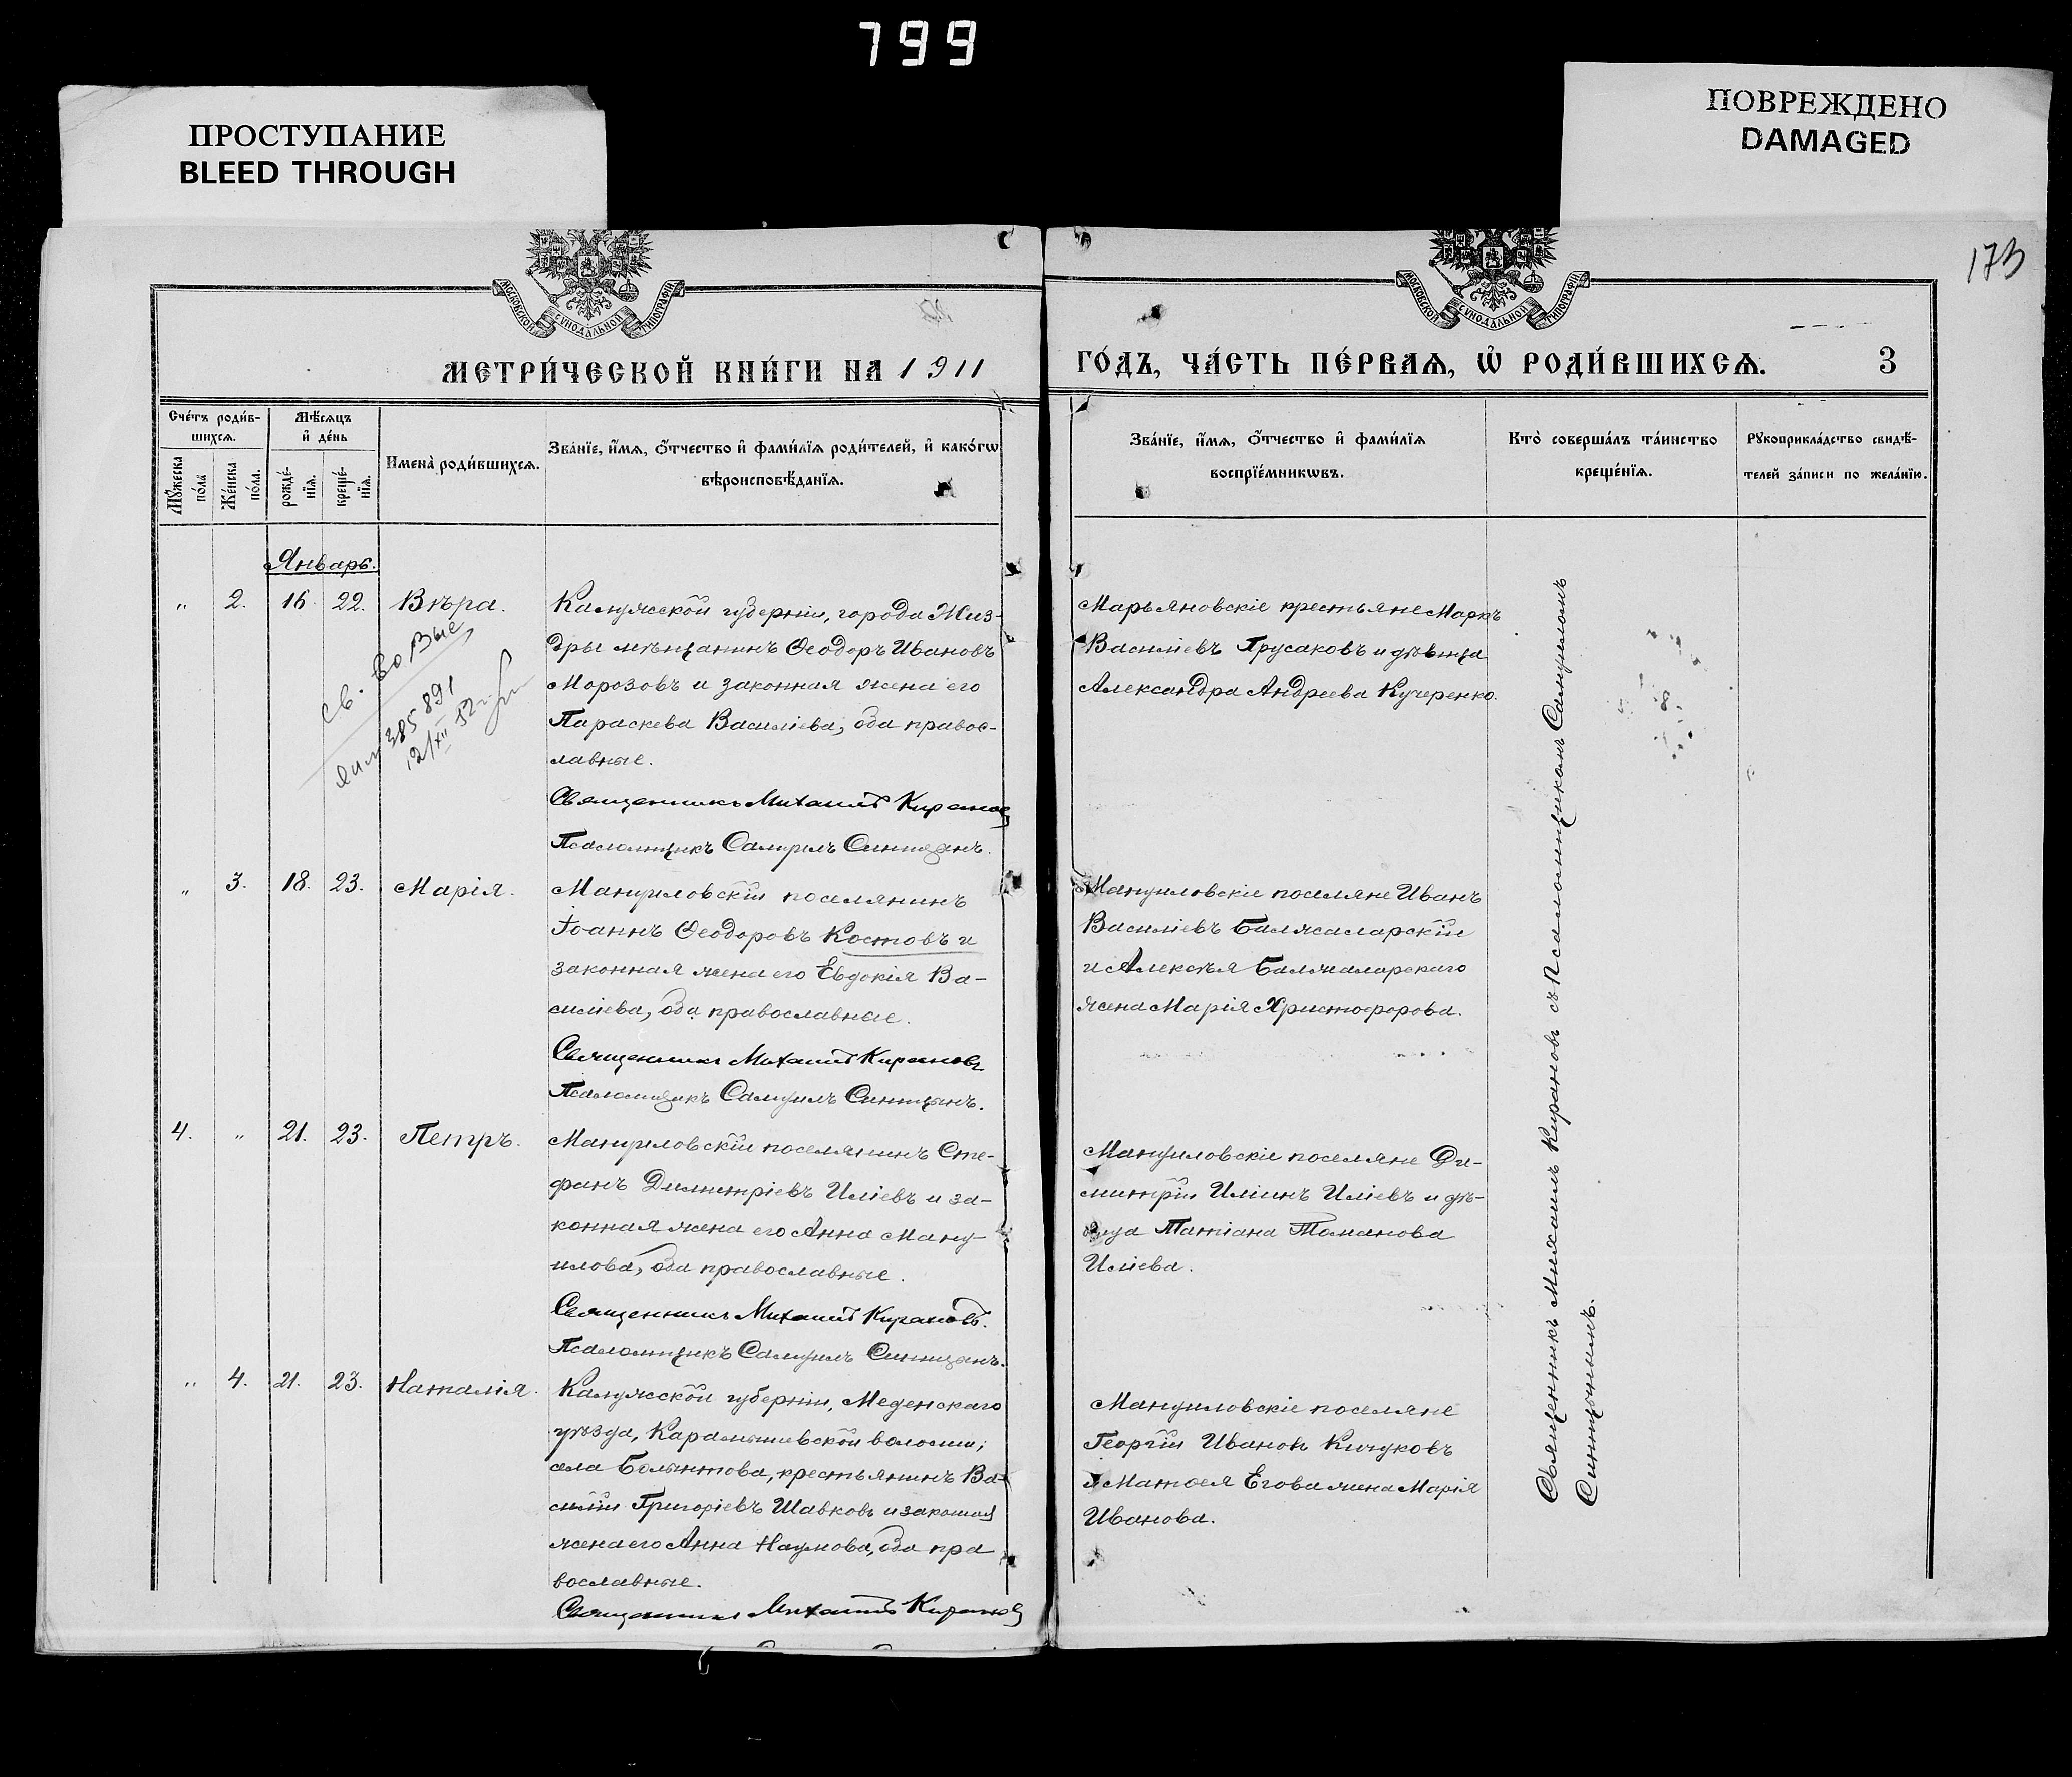 799
ПРОСТУПАНИЕ
BLEED THROUGH
ПОВРЕЖДЕНО
DAMAGED
173
МОСКОВСКОЙ СѴНОДАЛЬНОЙ ТИПОГРАФІИ
МОСКОВСКОЙ СѴНОДАЛЬНОЙ ТИПОГРАФІИ
МЕТРИ́ЧЕСКОЙ КНИ́ГИ НА 1911
ГО́ДЪ, ЧА́СТЬ ПЕ́РВАѦ, Ѽ РОДИ́ВШИХСѦ. 3
Сче́тъ роди́в-
шихсѧ.
Мѣ́сѧцъ
и҆ де́нь
Мꙋ́жеска
по́ла
Же́нска
по́ла.
рожде́-
нїѧ.
креще́-
нїѧ.
Имена̀ роди́вшихсѧ.
Зва́нїе, и҆́мѧ, ѻ҆́тчество и҆ фами́лїѧ роди́телей, и҆ како́гѡ
вѣроисповѣ́данїѧ.
Зва́нїе, и҆́мѧ, ѻ҆́тчество и҆ фами́лїѧ
воспрїе́мникѡвъ.
Кто̀ соверша́лъ та́инство
креще́нїѧ.
Рꙋкоприкла́дство свидѣ́-
телей за́писи по жела́нїю.
Январь.
" 2. 16. 22. Вѣра.
Калужской губерніи, города Жиз-
дры мѣщанинъ Ѳеодоръ Ивановъ
Морозовъ и законная жена его
Параскева Василіева, оба правос-
лавные.
Священникъ Михаилъ Кирановъ
Псаломщикъ Самуилъ Синицынъ.
Марьяновскіе крестьяне Маркъ
Василіевъ Прусаковъ и дѣвица
Александра Андреева Кучеренко.
св.
385891
12/XII 52
" 3. 18. 23. Марія.
Мануиловскій поселянинъ
Іоаннъ Ѳеодоровъ Костовъ и
законная жена его Евдокія Ва-
силіева, оба православные.
Священникъ Михаилъ Кирановъ
Псаломщикъ Самуилъ Синицынъ.
Мануиловскіе поселяне Иванъ
Василіевъ Балжаларскій
и Алексѣя Балжаларскаго
жена Марія Христофорова.
4. " 21. 23. Петръ.
Мануиловскій поселянинъ Сте-
фанъ Димитріевъ Иліевъ и за-
конная жена его АннаМану-
илова, оба православные.
Священникъ Михаилъ Кирановъ.
Псаломщикъ Самуилъ Синицынъ.
Мануиловскіе поселяне Ди-
митрій Иліинъ Иліевъ и дѣ-
вица Татіана Романова
Иліева.
" 4. 21. 23. Наталія.
Калужской губерніи, Меденскаго
уѣзда, Карамышевской волости,
села Болынтова, крестьянинъ Ва-
силій Григоріевъ Шавковъ и законная
жена его Анна Наумова, оба пра
вославные.
Священникъ Михаилъ Кирановъ
Мануиловскіе поселяне
Георгій Ивановъ Кичуковъ
и Матѳея Егова жена Марія
Иванова.
Священникъ Михаилъ Кирановъ съ Псаломщикомъ Самуиломъ
Синицынымъ.